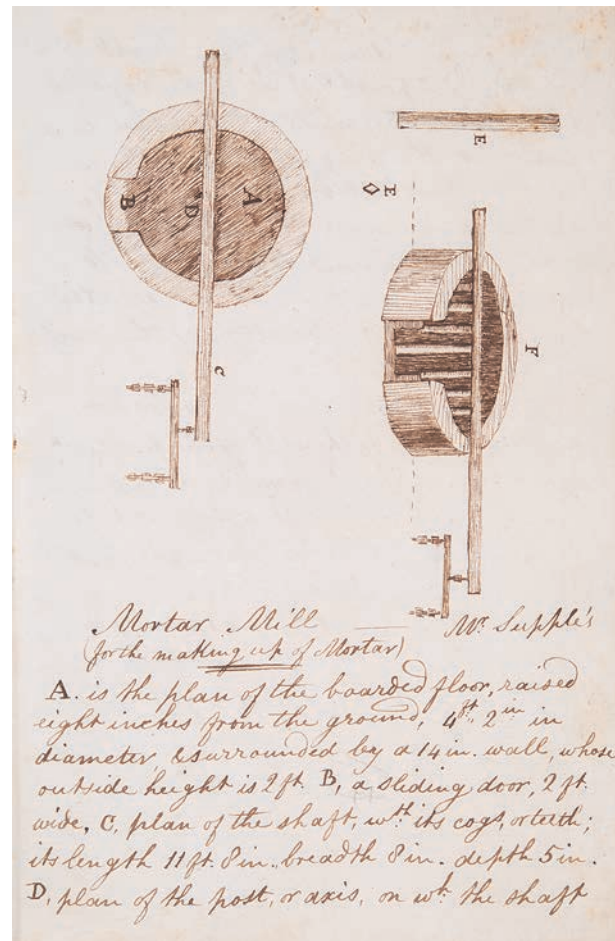 E
E
A
B
D
C
F
Mortar Mill — Mr. Supple's
(for the making up of Mortar)
A. is the plan of the boarded floor, raised
eight inches from the ground, 4ft. 2in in
diameter, & surrounded by a 14 in. wall, whose
outside height is 2 ft. B, a sliding door, 2 ft.
wide, C, plan of the shaft, wth its cogs, or teeth;
its length 11 ft. 8 in., breadth 8 in. depth 5 in.
D, plan of the post, or axis, on wh. the shaft